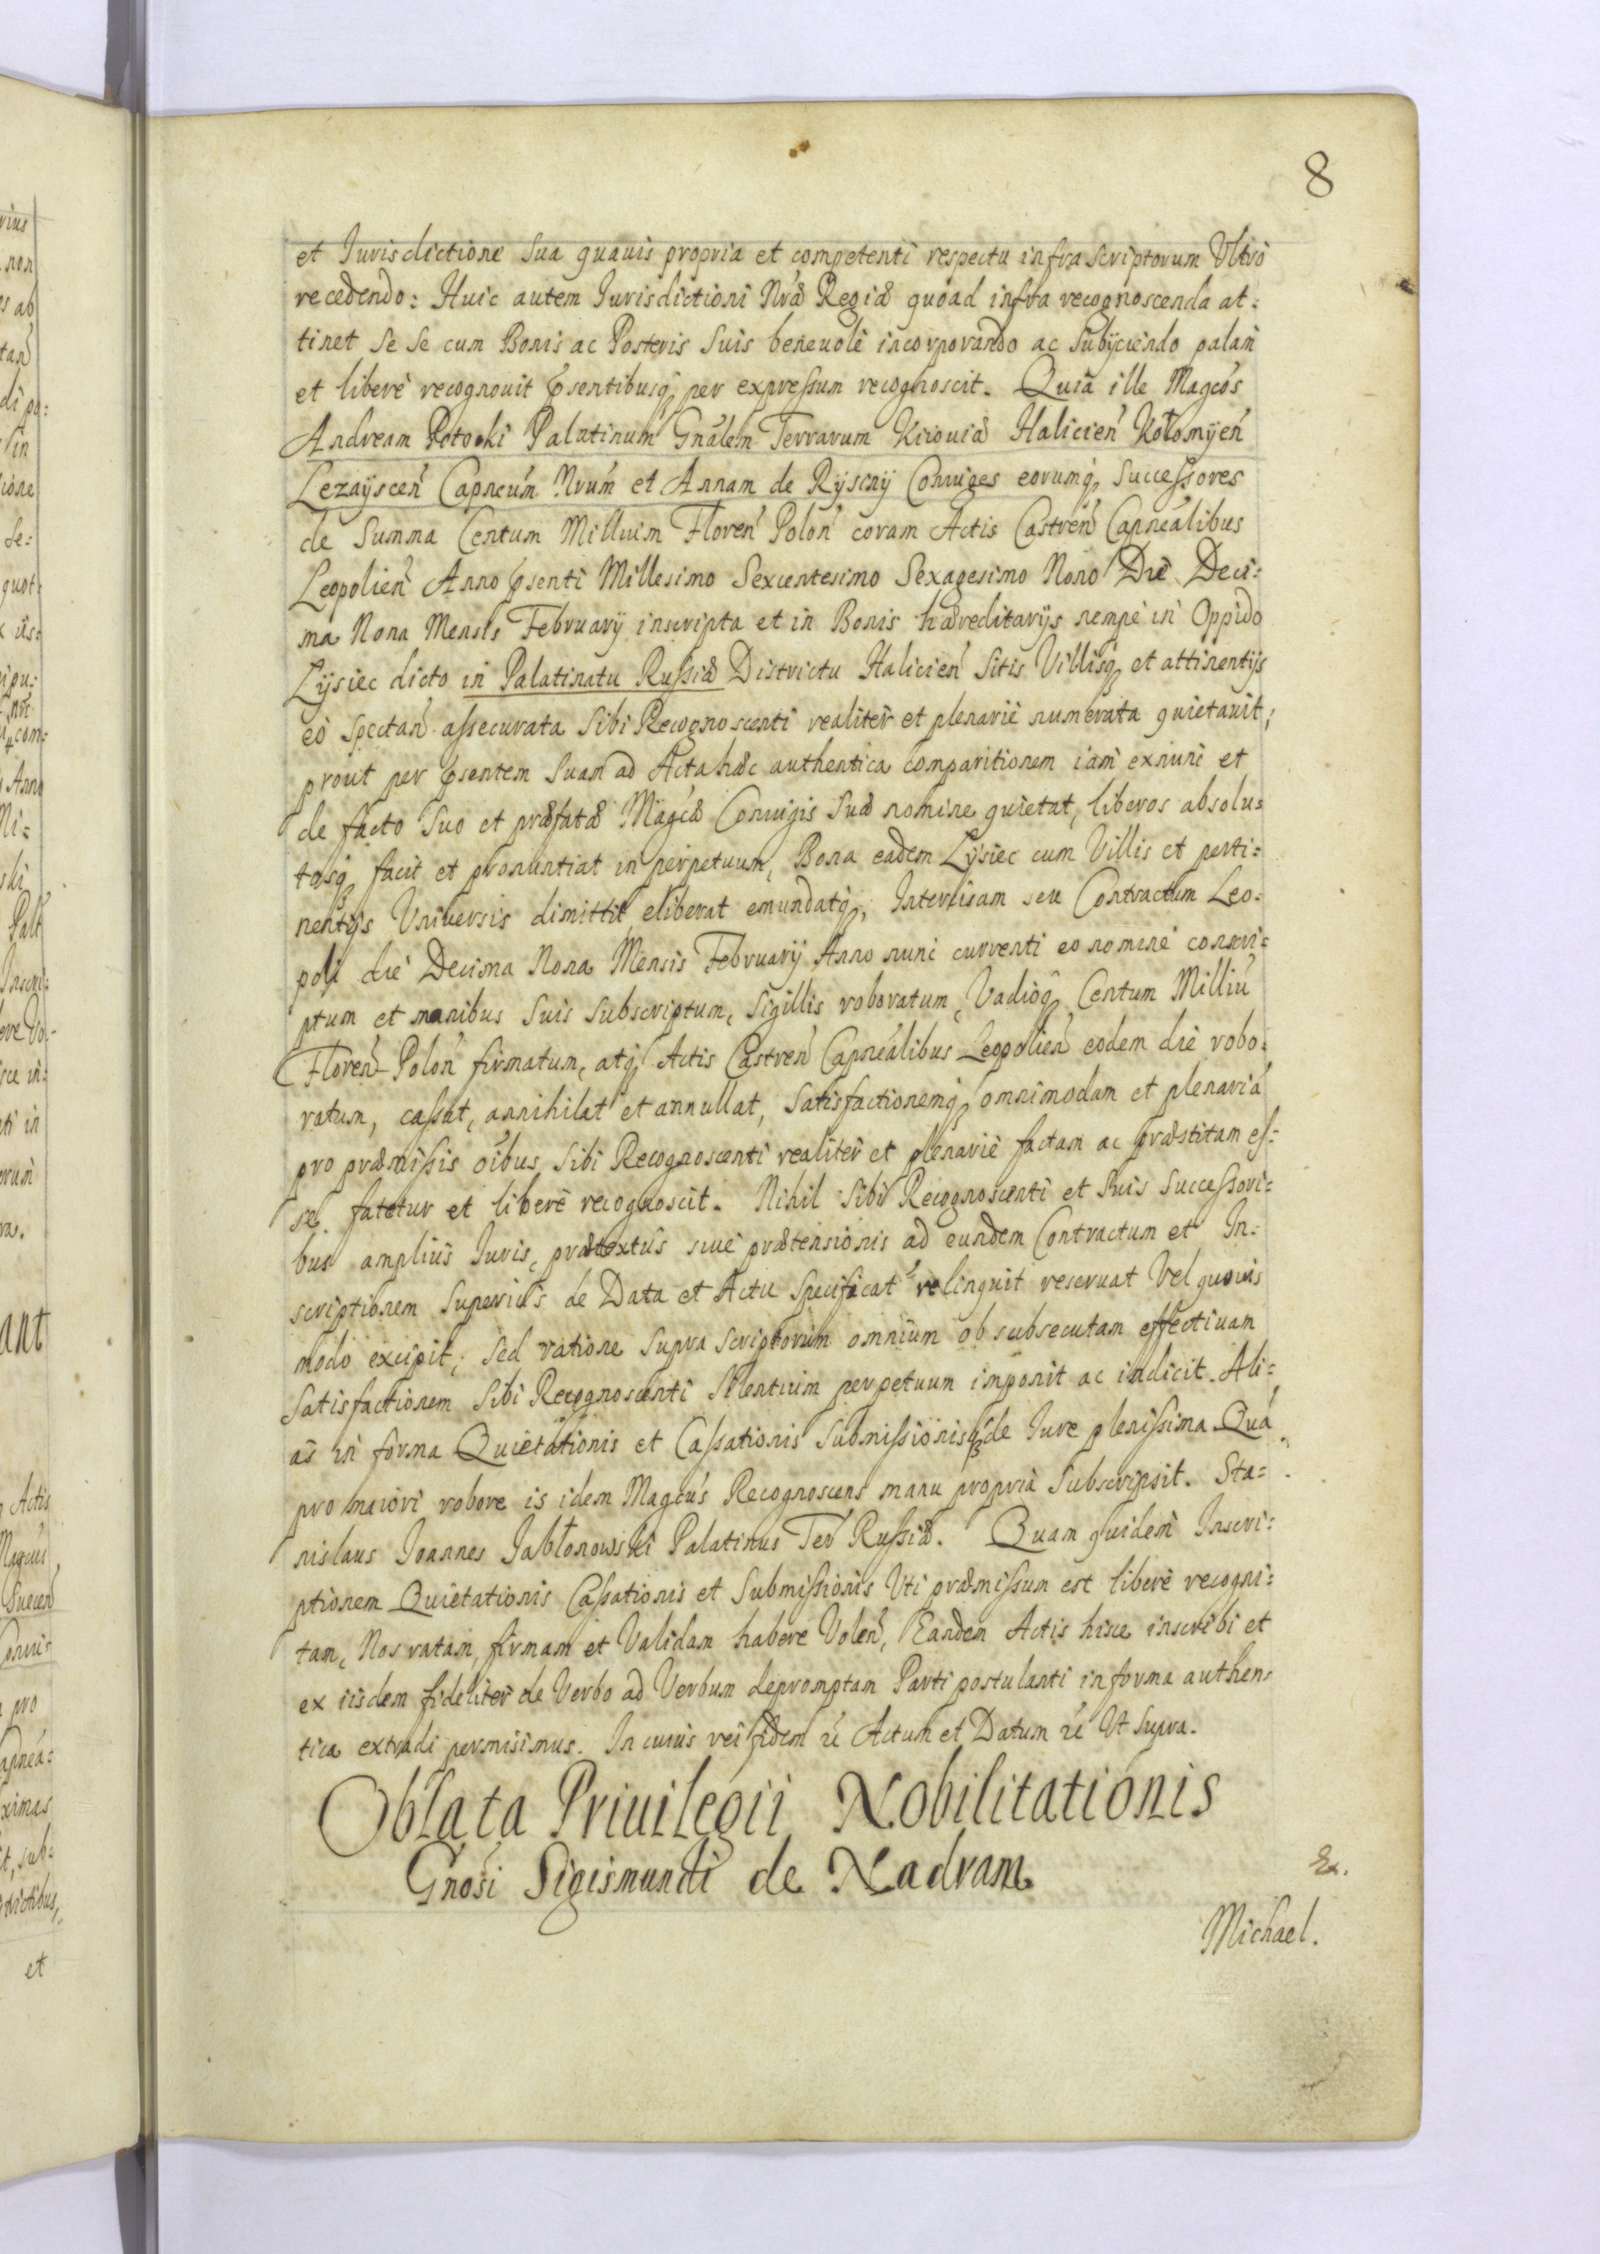 8
et Jurisdictione sua quauis propria et competenti respectu infra scriptorum Vltrò
recedendo: Huic autem Jurisdictioni Nræ Regiæ quoad infra recognoscenda at:
tinet se se cum Bonis ac Posteris suis beneuolè incorporando ac subÿciendo palàm
et liberè recognouit psentibusq; per expressum recognoscit. Quia ille Magcos
Andream Potocki Palatinum Gnalem Terrarum Kiiouiæ Halicien Kołomÿen
Lezaÿscen Capneum Nrum et Annam de Rÿsinÿ Coniuges eorumq; Successores
de Summa Centum Millium Floren Polon coram Actis Castren Capnealibus
Leopolien Anno psenti Millesimo Sexcentesimo Sexagesimo Nono Die Deci:
ma Nona Mensis Februarÿ inscripta et in Bonis hæreditarÿs nempè in Oppido
Lÿsiec dicto in Palatinatu Russiæ Districtu Halicien sitis Villisq; et attinentÿs
eò spectan assecurata sibi Recognoscenti realiter et plenariè numerata quietauit;
prout per psentem suam ad Acta hæc authentica comparitionem iam exnunc et
de facto suo et præfatæ Magcæ Coniugis suæ nomine quietat, liberos absolu:
tosq; facit et pronuntiat in perpetuum, Bona eadem Lÿsiec cum Villis et perti:
nentÿs Vniuersis dimittit eliberat emundatq;, Intercisam seu Contractum Leo:
poli die Decima Nona Mensis Februarÿ Anno nunc currenti eo nomine conscri:
ptum et manibus suis subscriptum, sigillis roboratum, Vadioq; Centum Milliu
Floren Polon firmatum, atq; Actis Castren Capnealibus Leopolien eodem die robo:
ratum, cassat, annihilat et annullat, satisfactionemq; omnimodam et plenaria
pro præmissis oibus sibi Recognoscenti realiter et plenariè factam ac præstitam es:
se fatetur et liberè recognoscit. Nihil sibi Recognoscenti et suis successori:
bus amplius Juris, prætextus siue prætensionis ad eundem Contractum et In:
scriptionem superius de Data et Actu specificat relinquit reseruat Vel quouis
modo excipit; sed ratione supra scriptorum omnium ob subsecutam effectiuam
satisfactionem sibi Recognoscenti silentium perpetuum imponit ac indicit. Ali:
as in forma Quietationis et Cassationis submissionisq; de Jure plenissima Qua
pro maiori robore is idem Magcus Recognoscens manu propria subscripsit. Sta:
nislaus Joannes Jabłonowski Palatinus Ter Russiæ. Quam quidem Inscri:
ptionem Quietationis Cassationis et submissionis Vti præmissum est liberè recogni:
tam, Nos ratam, firmam et Validam habere Volen, Eandem Actis hisce inscribi et
ex iisdem fideliter de Verbo ad Verbum depromptam Parti postulanti in forma authen:
tica extradi permisimus. In cuius rei fidem rc Actum et Datum rc Vt supra.
Oblata Priuilegii Nobilitationis
Gnosi Sigismundi de Nadram
Ex.
Michael.